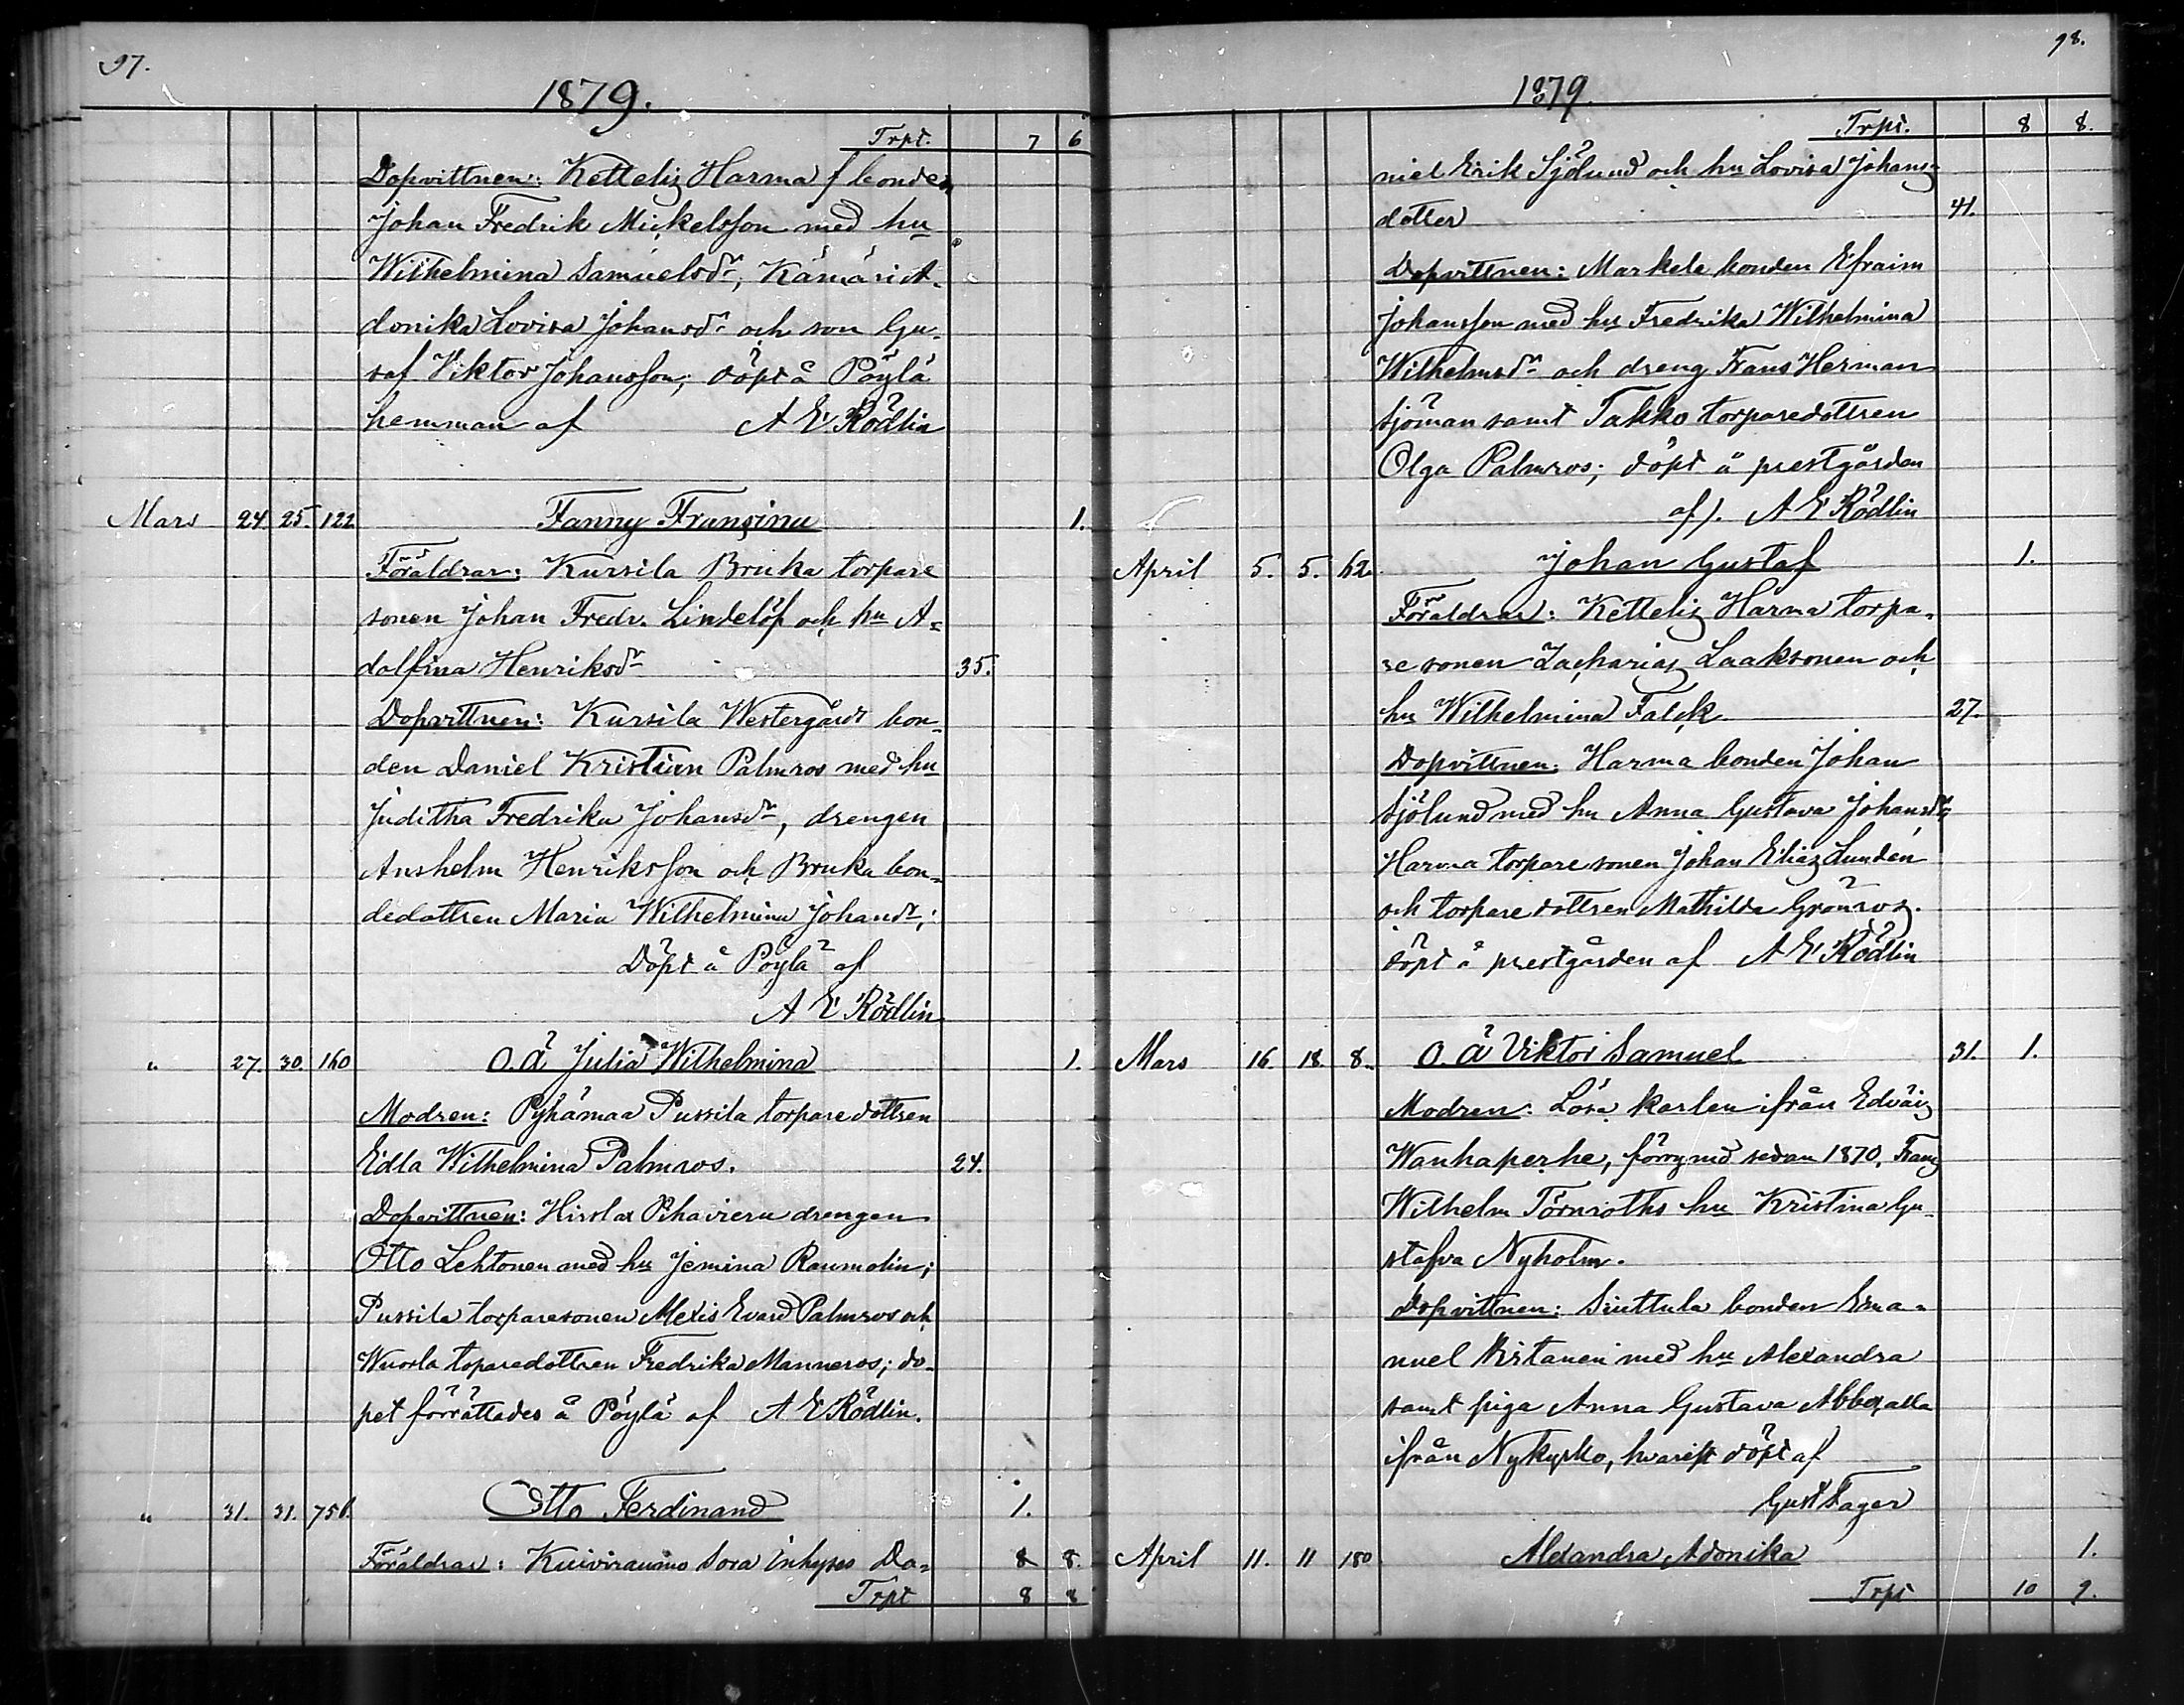 97.
1879.
Trpt. 7 6
Dopvittnen: Ketteliz Harma f bonden
Johan Fredrik Mickelsson med hu
Wilhelmina Samuelsdr, Kämäri A-
donika Lovisa Johansdr och son Gu-
staf Viktor Johansson; döpt å Pöylä
hemman af A E Rödlin
Mars 24 25 122 Fanny Fransina 1.
Föräldrar: Kursila Bruka torpare
sonen Johan Fredr. Lindelöf och hu A-
dolfina Henriksdr 35.
Dopvittnen: Kursila Westergårds bon-
den Daniel Kristian Palmros med hu
Juditha Fredrika Johansdr, drengen
Anshelm Henriksson och Bruka bon-
dedottren Maria Wilhelmina Johansdr;
Döpt å Pöylä af
A E Rödlin
" 27. 30. 160 O. Ä Julia Wilhelmina 1.
Modren: Pyhämaa Pussila torparedottren
Edla Wilhelmina Palmros. 24.
Dopvittnen: Hirslax Pihavieru drengen
Otto Lehtonen med hu Jemina Raumolin;
Pussila torparesonen Alexis Evard Palmros och
Wuorla toparedottren Fredrika Manneros; do-
pet förrättades å Pöylä af A E Rödlin.
" 31. 31. 756. Otto Ferdinand 1.
Föräldrar: Kuivirauma Sora inhyses Da- 8 8.
Trpt 8 8
98.
1879.
Trpt. 8 8.
niel Erik Sjölund och hu Lovisa Johans-
dotter 41.
Dopvittnen: Markele bonden Efraim
Johansson med hu Fredrika Wilhelmina
Wilhelmsdr och dreng Frans Herman
Sjöman samt Takko torparedottren
Olga Palmros; döpt å prestgården
af). A E Rödlin
April 5. 5. 62. Johan Gustaf 1.
Föräldrar: Ketteliz Harma torpa-
re sonen Zacharias Laaksonen och
hu Wilhelmina Falck 27.
Dopvittnen: Harma bonden Johan
Sjölund med hu Anna Gustava Johansdr,
Harma torpare sonen Johan Elias Lundén
och torpare dottren Mathilda Grönros.
döpt å prestgården af A E Rödlin
Mars 16. 18. 8. O. Ä Viktor Samuel 31. 1.
Modren: Lösa karlen ifrån Edväis
Wanhaperhe, förrymd sedan 1870, Frans
Wilhelm Törnroths hu Kristina Gu-
stafva Nyholm.
Dopvittnen: Siuttula bonden Ema-
nuel Wirtanen med hu Alexandra
samt piga Anna Gustava Abba, alla
ifrån Nykyrko, hvarest döpt af
Gust Fager
April 11. 11 180 Alexandra Adonika 1.
Trpt 10 9.